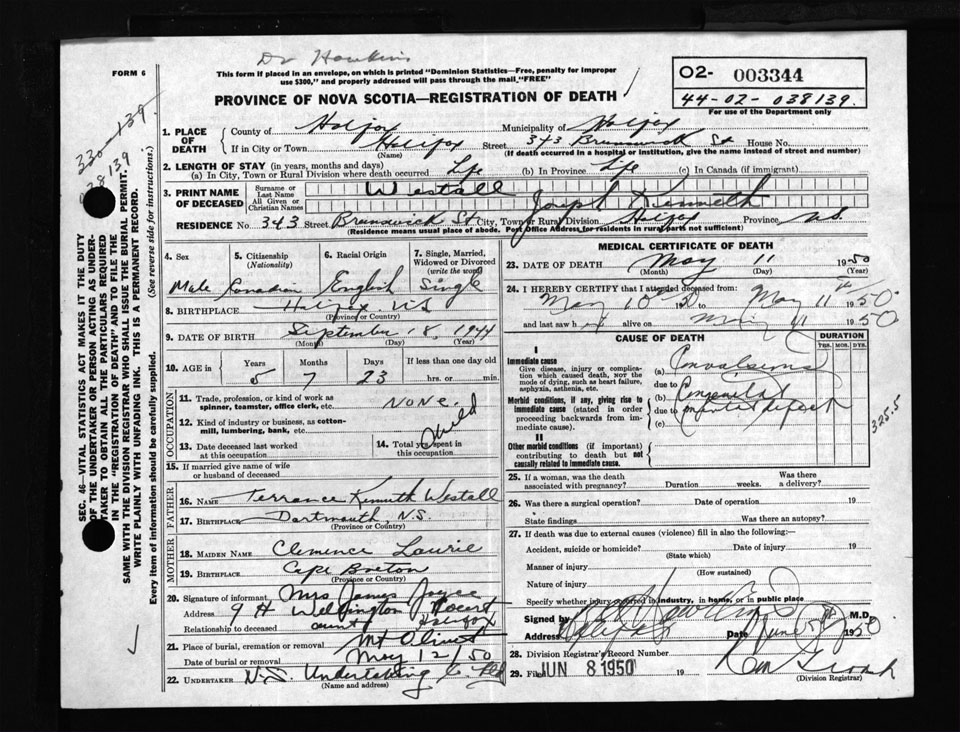 Dr Hawkins
FORM 6
This form if placed in an envelope, on which is printed "Dominion Statistics—Free, penalty for improper
use $300," and properly addressed will pass through the mail, "FREE"
O2- 003344
44-02-038139.
For use of the Department only
PROVINCE OF NOVA SCOTIA—REGISTRATION OF DEATH
330 139.
38139
SEC. 46—VITAL STATISTICS ACT MAKES IT THE DUTY
OF THE UNDERTAKER OR PERSON ACTING AS UNDER-
TAKER TO OBTAIN ALL THE PARTICULARS REQUIRED
IN THE "REGISTRATION OF DEATH" AND TO FILE THE
SAME WITH THE DIVISION REGISTRAR WHO SHALL ISSUE THE BURIAL PERMIT.
WRITE PLAINLY WITH UNFADING INK. THIS IS A PERMANENT RECORD.
Every item of information should be carefully supplied. (See reverse side for instructions.)
1. PLACE OF DEATH County of Halifax Municipality of Halifax
If in City or Town Halifax Street 343 Brunswick St House No.
(Name) (If death occurred in a hospital or institution, give the name instead of street and number)
2. LENGTH OF STAY (in years, months and days)
(a) In City, Town or Rural Division where death occurred Life (b) In Province Life (c) In Canada (if immigrant)
3. PRINT NAME OF DECEASED Surname or Last Name Westall
All Given or Christian Names Joseph Kenneth
RESIDENCE No. 343 Street Brunswick St City, Town or Rural Division Halifax Province N.S.
(Residence means usual place of abode. Post Office Address for residents in rural parts not sufficient)
4. Sex 5. Citizenship (Nationality) 6. Racial Origin 7. Single, Married, Widowed or Divorced (write the word)
Male Canadian English Single
8. BIRTHPLACE Halifax N.S
(Province or Country)
9. DATE OF BIRTH September 18, 1944
(Month) (Day) (Year)
10. AGE in Years Months Days If less than one day old
5 7 23 hrs. or min.
OCCUPATION
11. Trade, profession, or kind of work as
spinner, teamster, office clerk, etc. NONE.
12. Kind of industry or business, as cotton-
mill, lumbering, bank, etc. Child
13. Date deceased last worked at this occupation 14. Total yrs. spent in this occupation
15. If married give name of wife
or husband of deceased
FATHER
16. NAME Terrance Kenneth Westall
17. BIRTHPLACE Dartmouth N.S.
(Province or Country)
MOTHER
18. MAIDEN NAME Clemence Laurie
19. BIRTHPLACE Cape Breton
(Province or Country)
20. Signature of informant Mrs James Joyce
Address 9 H Wellington Court
Relationship to deceased aunt Halifax
21. Place of burial, cremation or removal Mt Olivet
Date of burial or removal May 12/50
22. UNDERTAKER N.S. Undertaking Co. Ltd
(Name and address)
MEDICAL CERTIFICATE OF DEATH
23. DATE OF DEATH May 11 1950
(Month) (Day) (Year)
24. I HEREBY CERTIFY that I attended deceased from:
May 10 to May 11th 1950
and last saw him alive on May 11 1950
CAUSE OF DEATH DURATION
YRS. MOS. DYS.
I
Immediate cause
Give disease, injury or complication which caused death, not the mode of dying, such as heart failure, asphyxia, asthenia, etc.
(a) Convulsions
due to
Morbid conditions, if any, giving rise to immediate cause (stated in order proceeding backwards from immediate cause).
(b) Congenital
due to mental defect
(c)
325.5
II
Other morbid conditions (if important) contributing to death but not causally related to immediate cause.
25. If a woman, was the death associated with pregnancy? Duration weeks. Was there a delivery?
26. Was there a surgical operation? Date of operation 19
State findings Was there an autopsy?
27. If death was due to external causes (violence) fill in also the following:—
Accident, suicide or homicide? Date of injury 19
(State which)
Manner of injury
(How sustained)
Nature of injury
Specify whether injury occurred in industry, in home, or in public place
Signed by Hawkins M.D.
Address Halifax Date June 5th 1950
28. Division Registrar's Record Number
29. Filed JUN 8 1950 19
(Division Registrar)